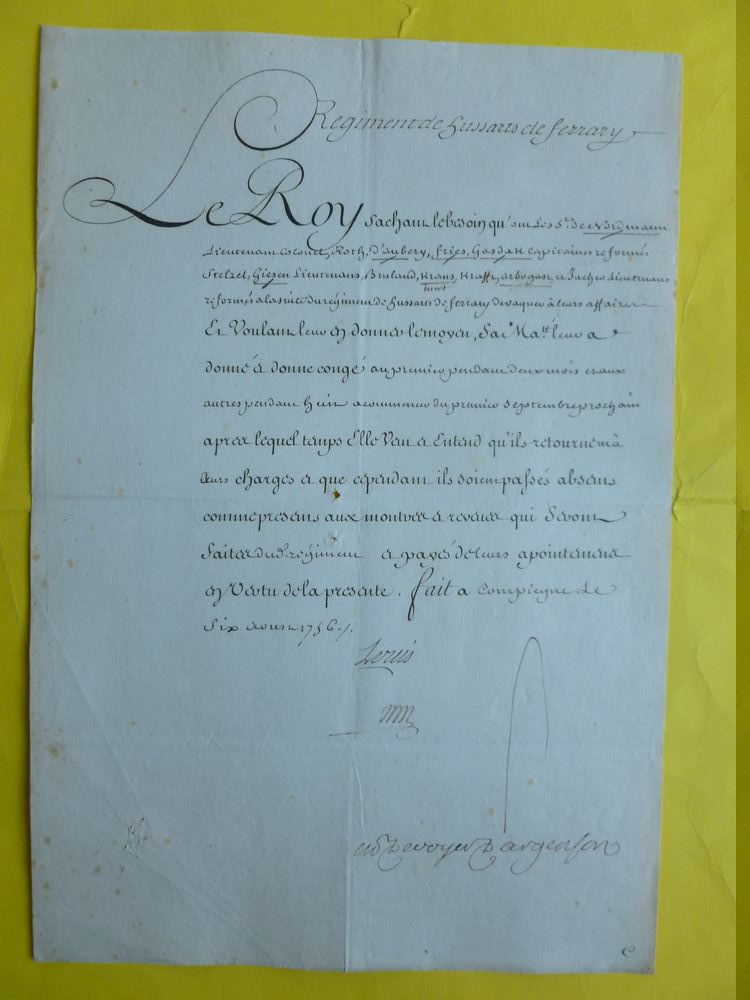 Regiment de hussarts de ferrary
Le Roy Sachant le besoin qu'ont Les Srs de Nordmann
Lieutenant Colonel, Roth, d'aubery, fries, Gasdak Capitaines reformés
Stelzet, Giesen Lieutenans, Bruland, Kraus, Krafft, arbogast, et Lieutenans
mort
reformés a la suite du regiment de hussarts de ferrary de vaquer à leurs affaires
Et Voulant leur en donner le moyen, Sa Maté leur a
donné et donne congé au premier pendant deux mois et aux
autres pendant huit a commencer du premier Septembre prochain
aprés lequel temps Elle Veut et Entend qu'ils retournent à
leurs charges et que cependant ils soient passés absens
comme presens aux montres et reveues qui Seront
faites dud. regiment et payés de leurs apointemens
en Vertu de la presente. fait a Compiegne le
Six Aoust 1756 ./.
Louis
M de voyer D argenson